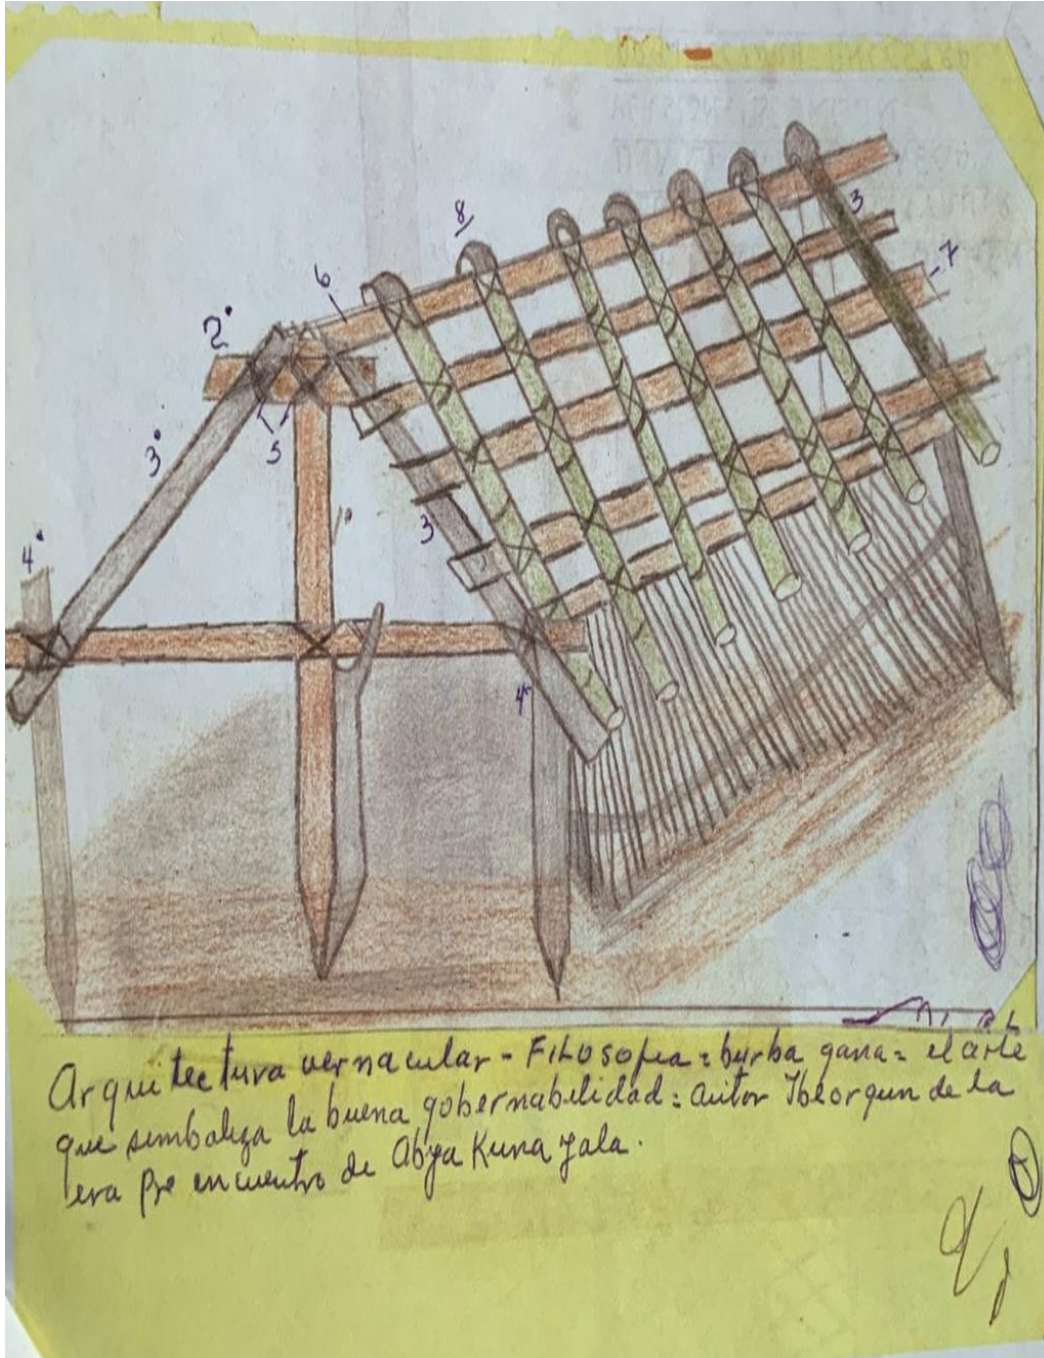 8
3
6
7
2°
5
3°
1°
3
4°
4°
Arquitectura vernacular - Filosofia = burba gana = el arte
que simboliza la buena gobernabilidad = autor Ibeorgun de la
era pre encuentro de Abya Kuna Yala.